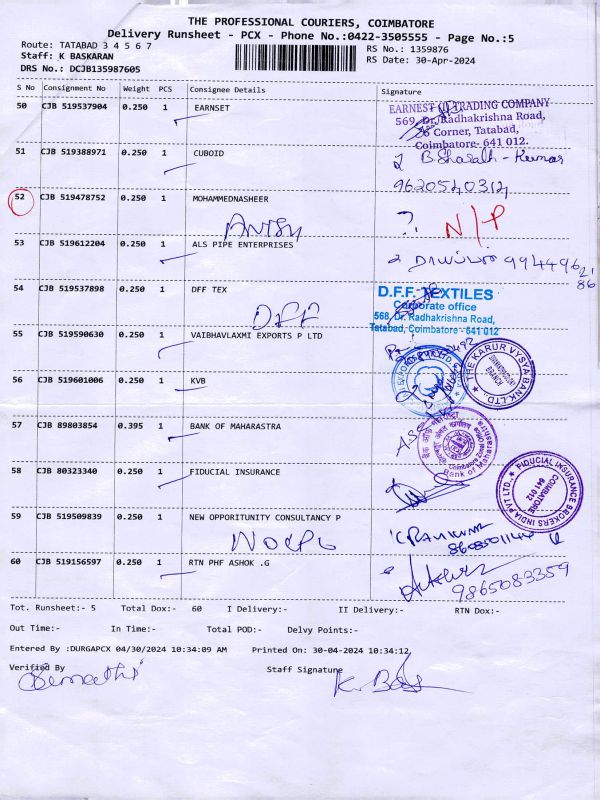 THE PROFESSIONAL COURIERS, COIMBATORE
Delivery Runsheet - PCX - Phone No.:0422-3505555 - Page No.:5
Route: TATABAD 3 4 5 6 7
RS No.: 1359876
Staff: K BASKARAN
RS Date: 30-Apr-2024
DRS No.: DCJB135987605
S No Consignment No Weight PCS Consignee Details Signature
50 CJB 519537904 0.250 1 EARNSET
EARNEST TRADING COMPANY
569, Dr. Radhakrishna Road,
Corner, Tatabad,
Coimbatore- 641 012.
51 CJB 519388971 0.250 1 CUBOID
B. Sharath - Kumar
9620540312
52 CJB 519478752 0.250 1 MOHAMMEDNASHEER
?. N/P
53 CJB 519612204 0.250 1 ALS PIPE ENTERPRISES
54 CJB 519537898 0.250 1 DFF TEX
DFF
D.F.F. TEXTILES
Corporate office
568, Dr. Radhakrishna Road,
Tatabad, Coimbatore - 641 012
55 CJB 519590630 0.250 1 VAIBHAVLAXMI EXPORTS P LTD
56 CJB 519601006 0.250 1 KVB
THE KARUR VYSYA BANK LTD.,
BRANCH
57 CJB 89803854 0.395 1 BANK OF MAHARASTRA
Bank of Maharashtra
58 CJB 80323340 0.250 1 FIDUCIAL INSURANCE
FIDUCIAL INSURANCE BROKERS INDIA PVT LTD.,
COIMBATORE
641 012
59 CJB 519509839 0.250 1 NEW OPPORITUNITY CONSULTANCY P
60 CJB 519156597 0.250 1 RTN PHF ASHOK .G
9865083359
Tot. Runsheet:- 5 Total Dox:- 60 I Delivery:- II Delivery:- RTN Dox:-
Out Time:- In Time:- Total POD:- Delvy Points:-
Entered By :DURGAPCX 04/30/2024 10:34:09 AM Printed On: 30-04-2024 10:34:12
Verified By Staff Signature
K. Bas